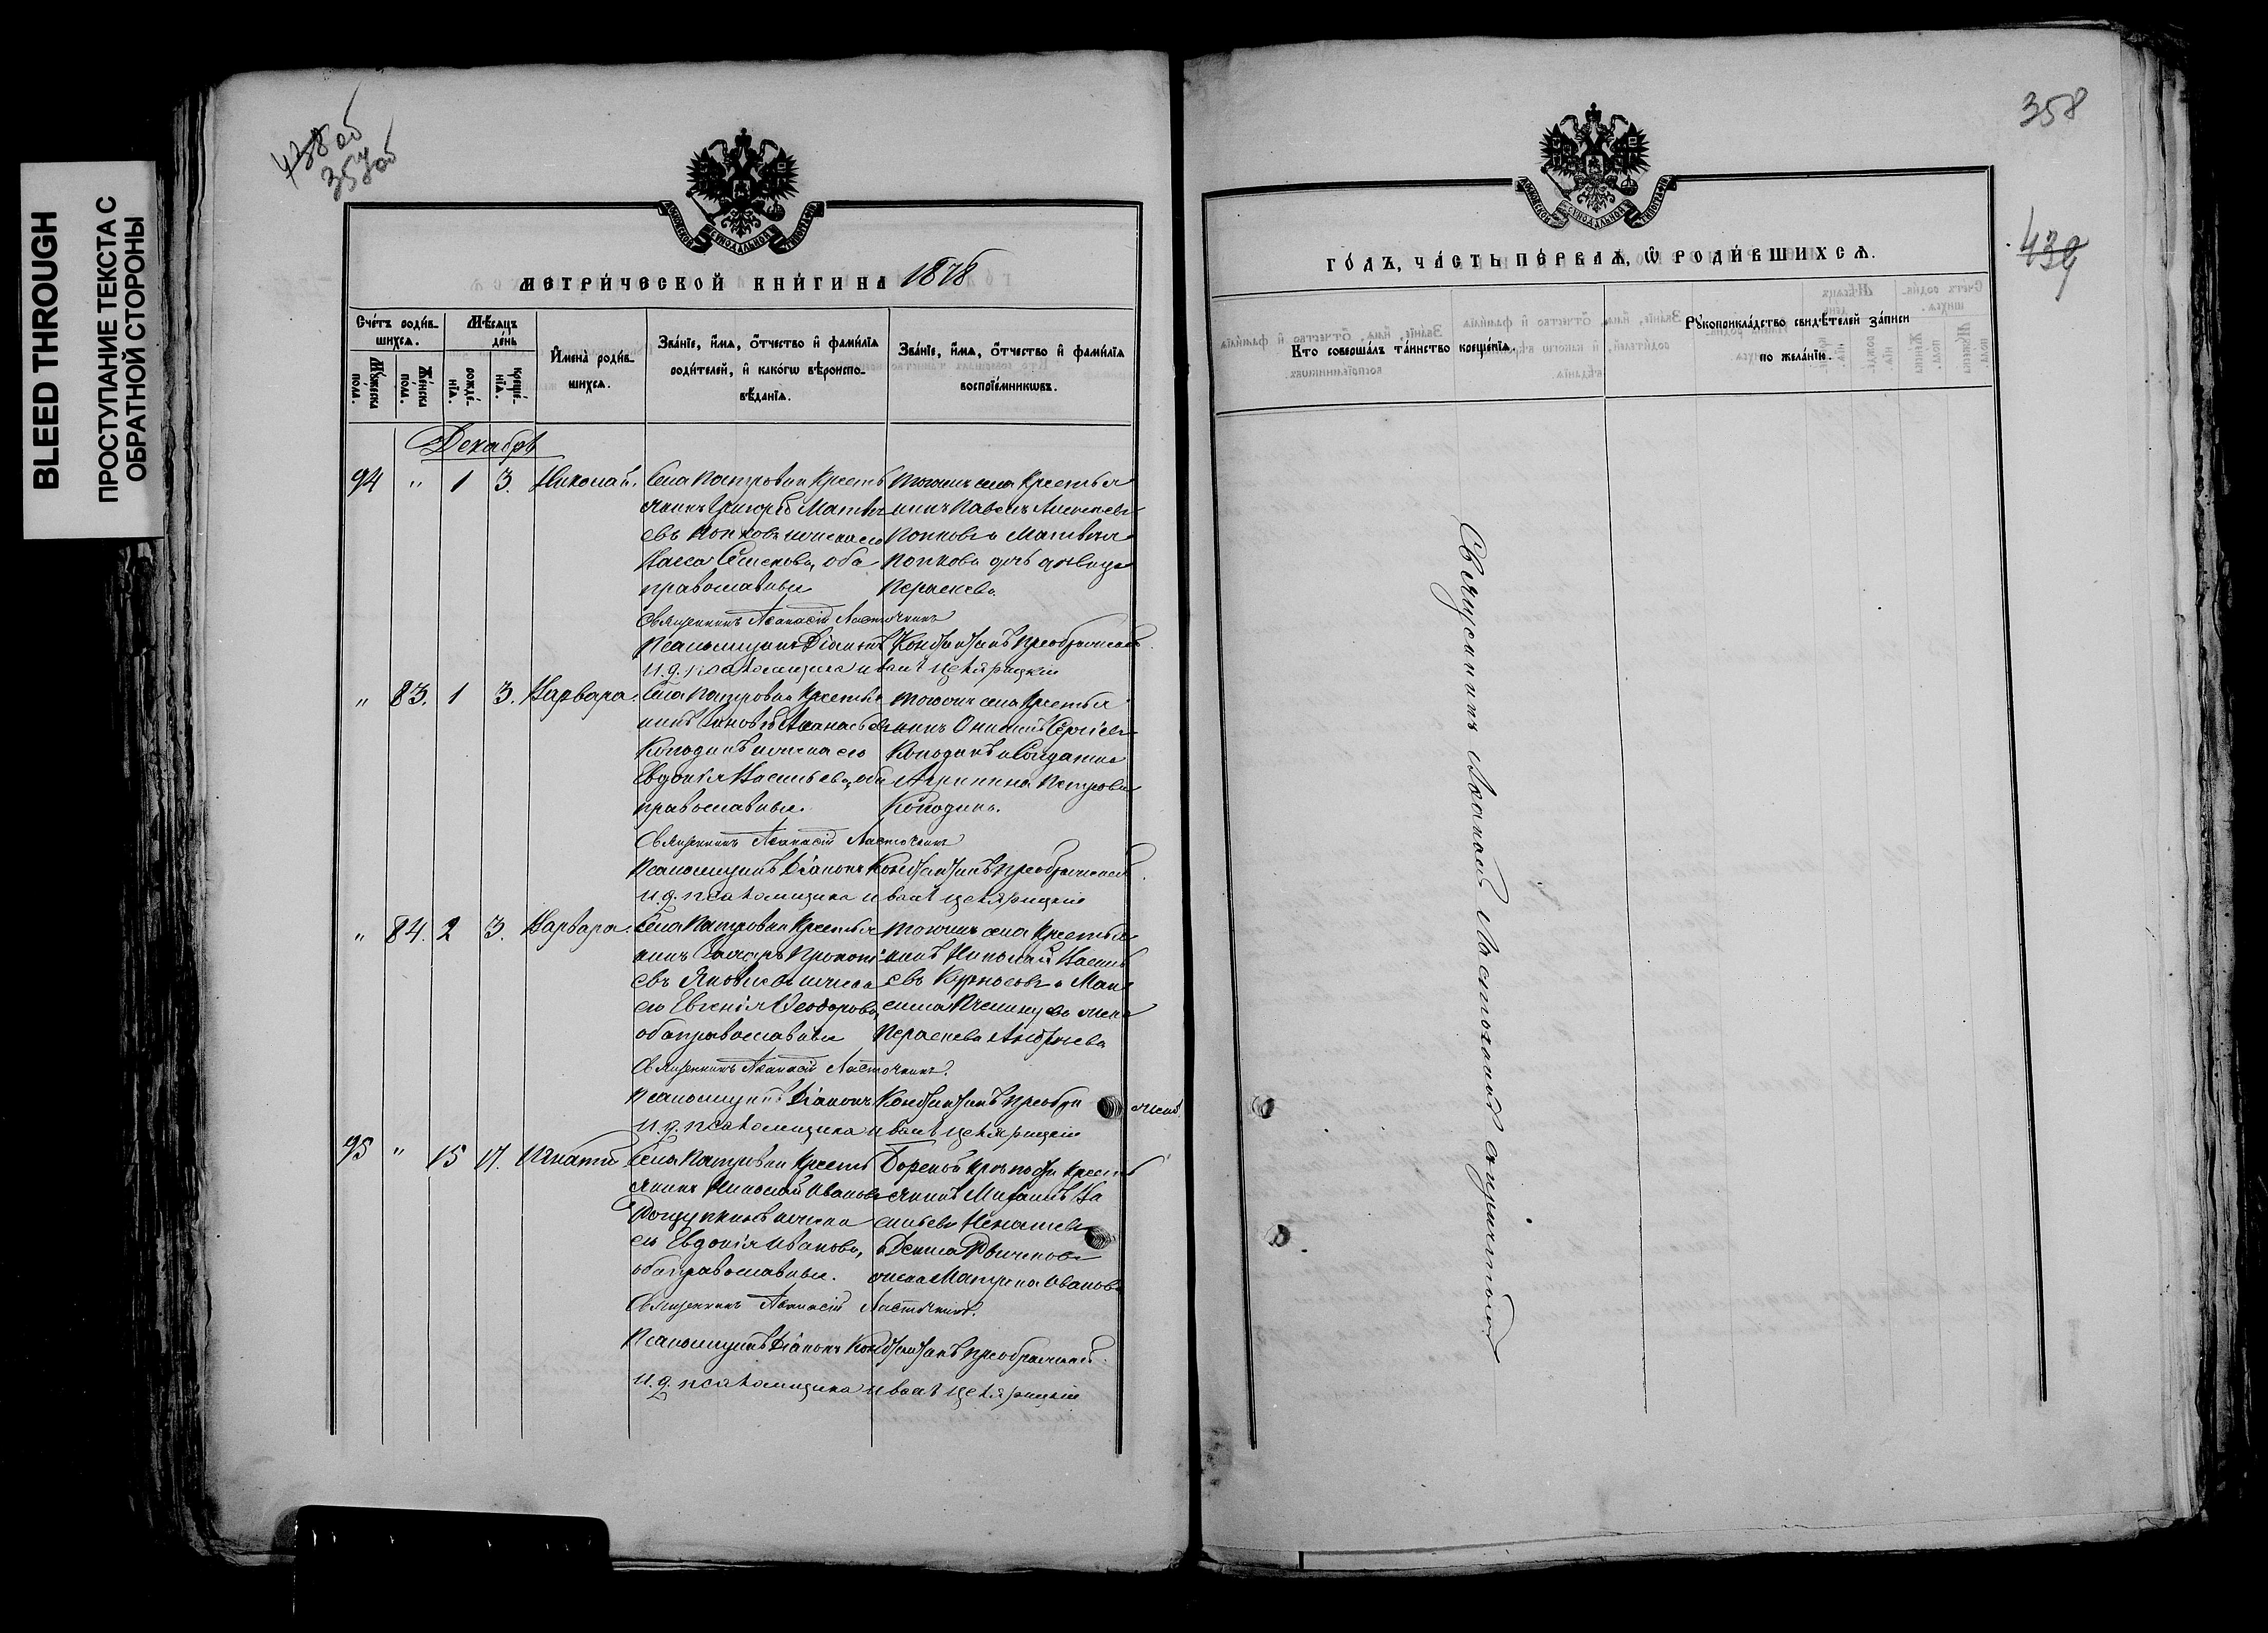 BLEED THROUGH
ПРОСТУПАНИЕ ТЕКСТА С
ОБРАТНОЙ СТОРОНЫ
438 об
357 об
МОСКОВСКОЙ СѴНОДАЛЬНОЙ ТИПОГРАФІИ
МЕТРИ́ЧЕСКОЙ КНИ́ГИ НА 1878
Сче́тъ роди́в-
шихсѧ.
Мꙋ́жеска
пола.
Же́нска
пола.
Мѣ́сѧцъ
де́нь
рожде́-
нїѧ.
креще́-
нїѧ.
И҆мена̀ роди́в-
шихсѧ.
Зва́нїе, и҆́мѧ, о҆́тчество и҆ фами́лїѧ
роди́телей, и҆ како́гѡ вѣроиспо-
вѣ́данїѧ.
Зва́нїе, и҆́мѧ, о҆́тчество и҆ фами́лїѧ
воспрїе́мникѡвъ.
Декабрь
94 " 1 3. Николай.
Села Патровки Кресть
янинъ Григорій Матвѣ
евъ Попковъ и жена его
Васса Семенова, оба
православные
тогоже села Крестья
нинъ Павелъ Алексѣевъ
Попковъ и Матвѣя
Попкова дочь дѣвица
Параскева.
Священникъ Аѳанасій Ласточкинъ
Псаломщикъ Діаконъ Константинъ Преображенскій.
И. д. псаломщика Иванъ
" 83. 1 3. Варвара.
Села Патровки Крестья
нинъ Аѳанасьевъ
Колодинъ и жена его
Евдокія Васильева, оба
православные.
тогоже села Крестья
нинъ Онисимъ Сергіевъ
Колодинъ и Солдатка
Агрипина Петрова
Колодина.
Священникъ Аѳанасій Ласточкинъ
Псаломщикъ Діаконъ Константинъ Преображенскій.
И. д. псаломщика Иванъ
" 84. 2 3. Варвара.
Села Патровки Крестья
нинъ Прокопі
евъ Яковлевъ и жена
его Евгенія Ѳеодорова,
оба православные
тогоже села Крестья
нинъ Николай Василь
евъ Курносовъ и Мак
сима жена
Параскева Андреева
Священникъ Аѳанасій Ласточкинъ.
Псаломщикъ Діаконъ Константинъ Преобра женскій.
И. д. псаломщика Иванъ
95 " 15 17. Игнатій
Села Патровки Кресть
янинъ Николай Ивановъ
и жена
его Евдокія Иванова,
оба православные.
Борской крѣпости Кресть
янинъ Михаилъ Ва
сильевъ Ненашевъ
и Дениса
жена Матрена Иванова
Священникъ Аѳанасій Ласточкинъ.
Псаломщикъ Діаконъ Константинъ Преображенскій.
И. д. псаломщика Иванъ
358
439
МОСКОВСКОЙ СѴНОДАЛЬНОЙ ТИПОГРАФІИ
ГО́ДЪ, ЧА́СТЬ ПЕ́РВАѦ, Ѽ РОДИ́ВШИХСѦ.
Кто соверша́лъ та́инство креще́нїѧ.
Рꙋкоприкла́дство свидѣ́телей за́писи
по жела́нїю.
Священникъ Аѳанасій Ласточкинъ